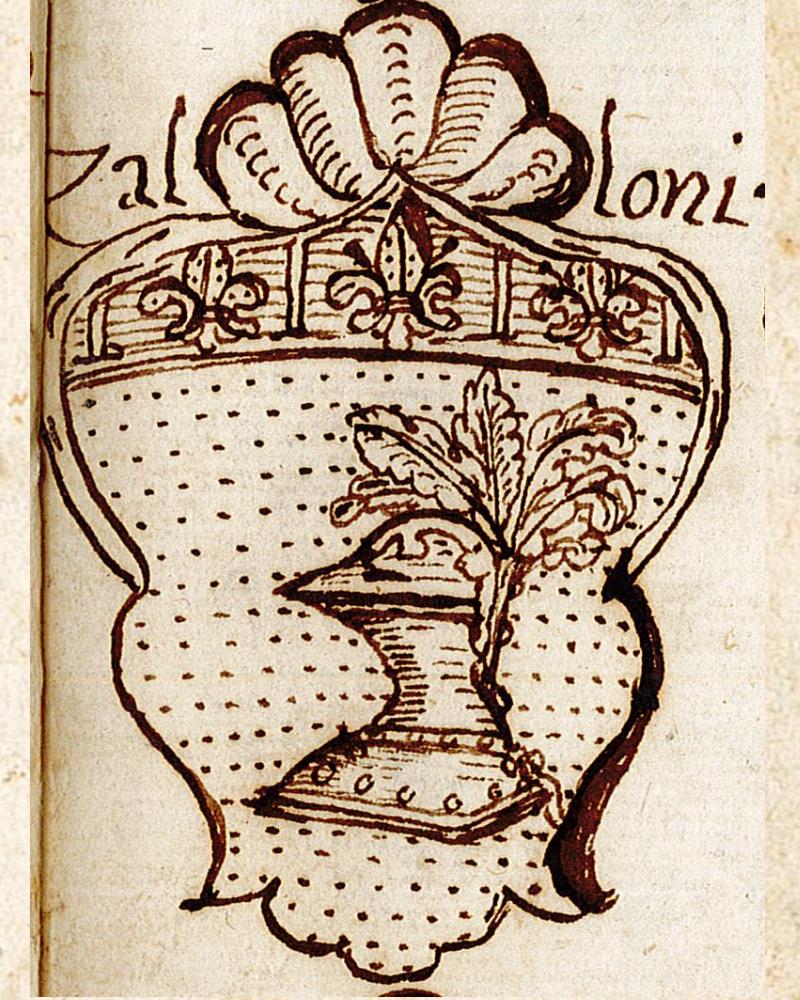 Zal loni